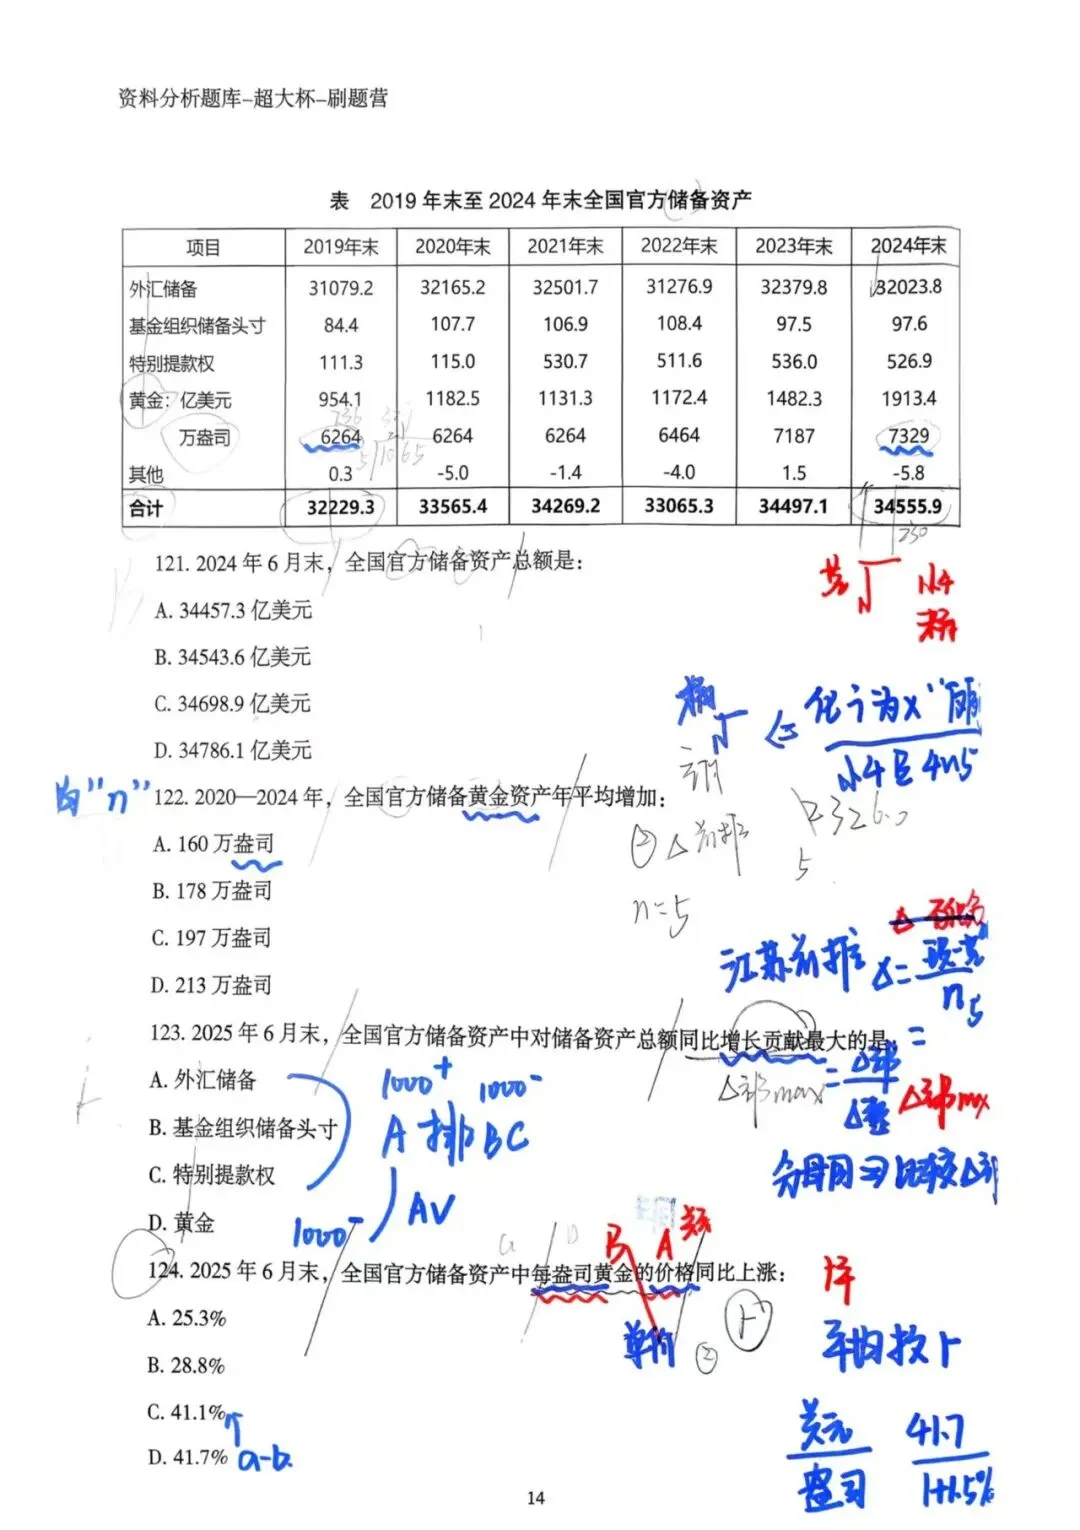 资料分析题库-超大杯-刷题营
表 2019年末至2024年末全国官方储备资产
项目 2019年末 2020年末 2021年末 2022年末 2023年末 2024年末
外汇储备 31079.2 32165.2 32501.7 31276.9 32379.8 32023.8
基金组织储备头寸 84.4 107.7 106.9 108.4 97.5 97.6
特别提款权 111.3 115.0 530.7 511.6 536.0 526.9
黄金：亿美元 954.1 1182.5 1131.3 1172.4 1482.3 1913.4
万盎司 6264 6264 6264 6464 7187 7329
其他 0.3 -5.0 -1.4 -4.0 1.5 -5.8
合计 32229.3 33565.4 34269.2 33065.3 34497.1 34555.9
230
121. 2024年6月末，全国官方储备资产总额是：
A. 34457.3亿美元
B. 34543.6亿美元
C. 34698.9亿美元
D. 34786.1亿美元
均"n"
122. 2020—2024年，全国官方储备黄金资产年平均增加：
A. 160万盎司
B. 178万盎司
C. 197万盎司
D. 213万盎司
n=5
江苏前推
123. 2025年6月末，全国官方储备资产中对储备资产总额同比增长贡献最大的是：
A. 外汇储备
B. 基金组织储备头寸
C. 特别提款权
D. 黄金
1000+ 1000-
A排BC
1000- AV
B A
124. 2025年6月末，全国官方储备资产中每盎司黄金的价格同比上涨：
A. 25.3%
B. 28.8%
C. 41.1%
D. 41.7% a-b
单价 ②
平均
美元 41.7
盎司 1+1.5%
14